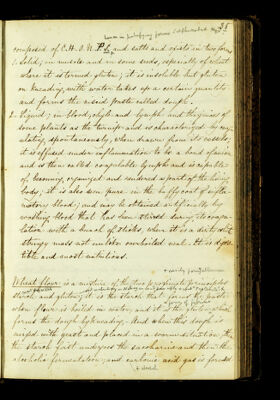 composed of C. H. O. N. P. S. and salts and exists in two forms
1. Solid; in muscle and in some seeds, especially of wheat
where it is termed gluten; it is insoluble but gluten
on kneading with water takes up a certain quantity
and forms the viscid paste called dough.
2. Liquid; in blood, chyle and lymph and the juices of
some plants as the turnip and is characterized by coag-
ulating spontaneously, when drawn from its vessels;
it is effused under inflammation to be a bond of union
and is then called coagulable lymph and is capable
of becoming organized and rendered a part of the living
body; it is also seen pure in the buffy coat of inflam-
matory blood; and may be obtained artificially by
washing blood that has been stirred during its coagu-
lation with a bunch of sticks, when it is a dirty white
stringy mass not unlike overboiled veal. It is diges-
tible and most nutritious.
Wheat flour is a mixture of the two proximate principles
starch and gluten; it is the starch that forms the paste
when flour is boiled in water, and it is the gluten which
forms the dough by kneading. And when this dough is
mixed with yeast and placed in a warm situation, the
the starch first undergoes the saccharine and then the
alcoholic fermentation; and carbonic acid gas is formed